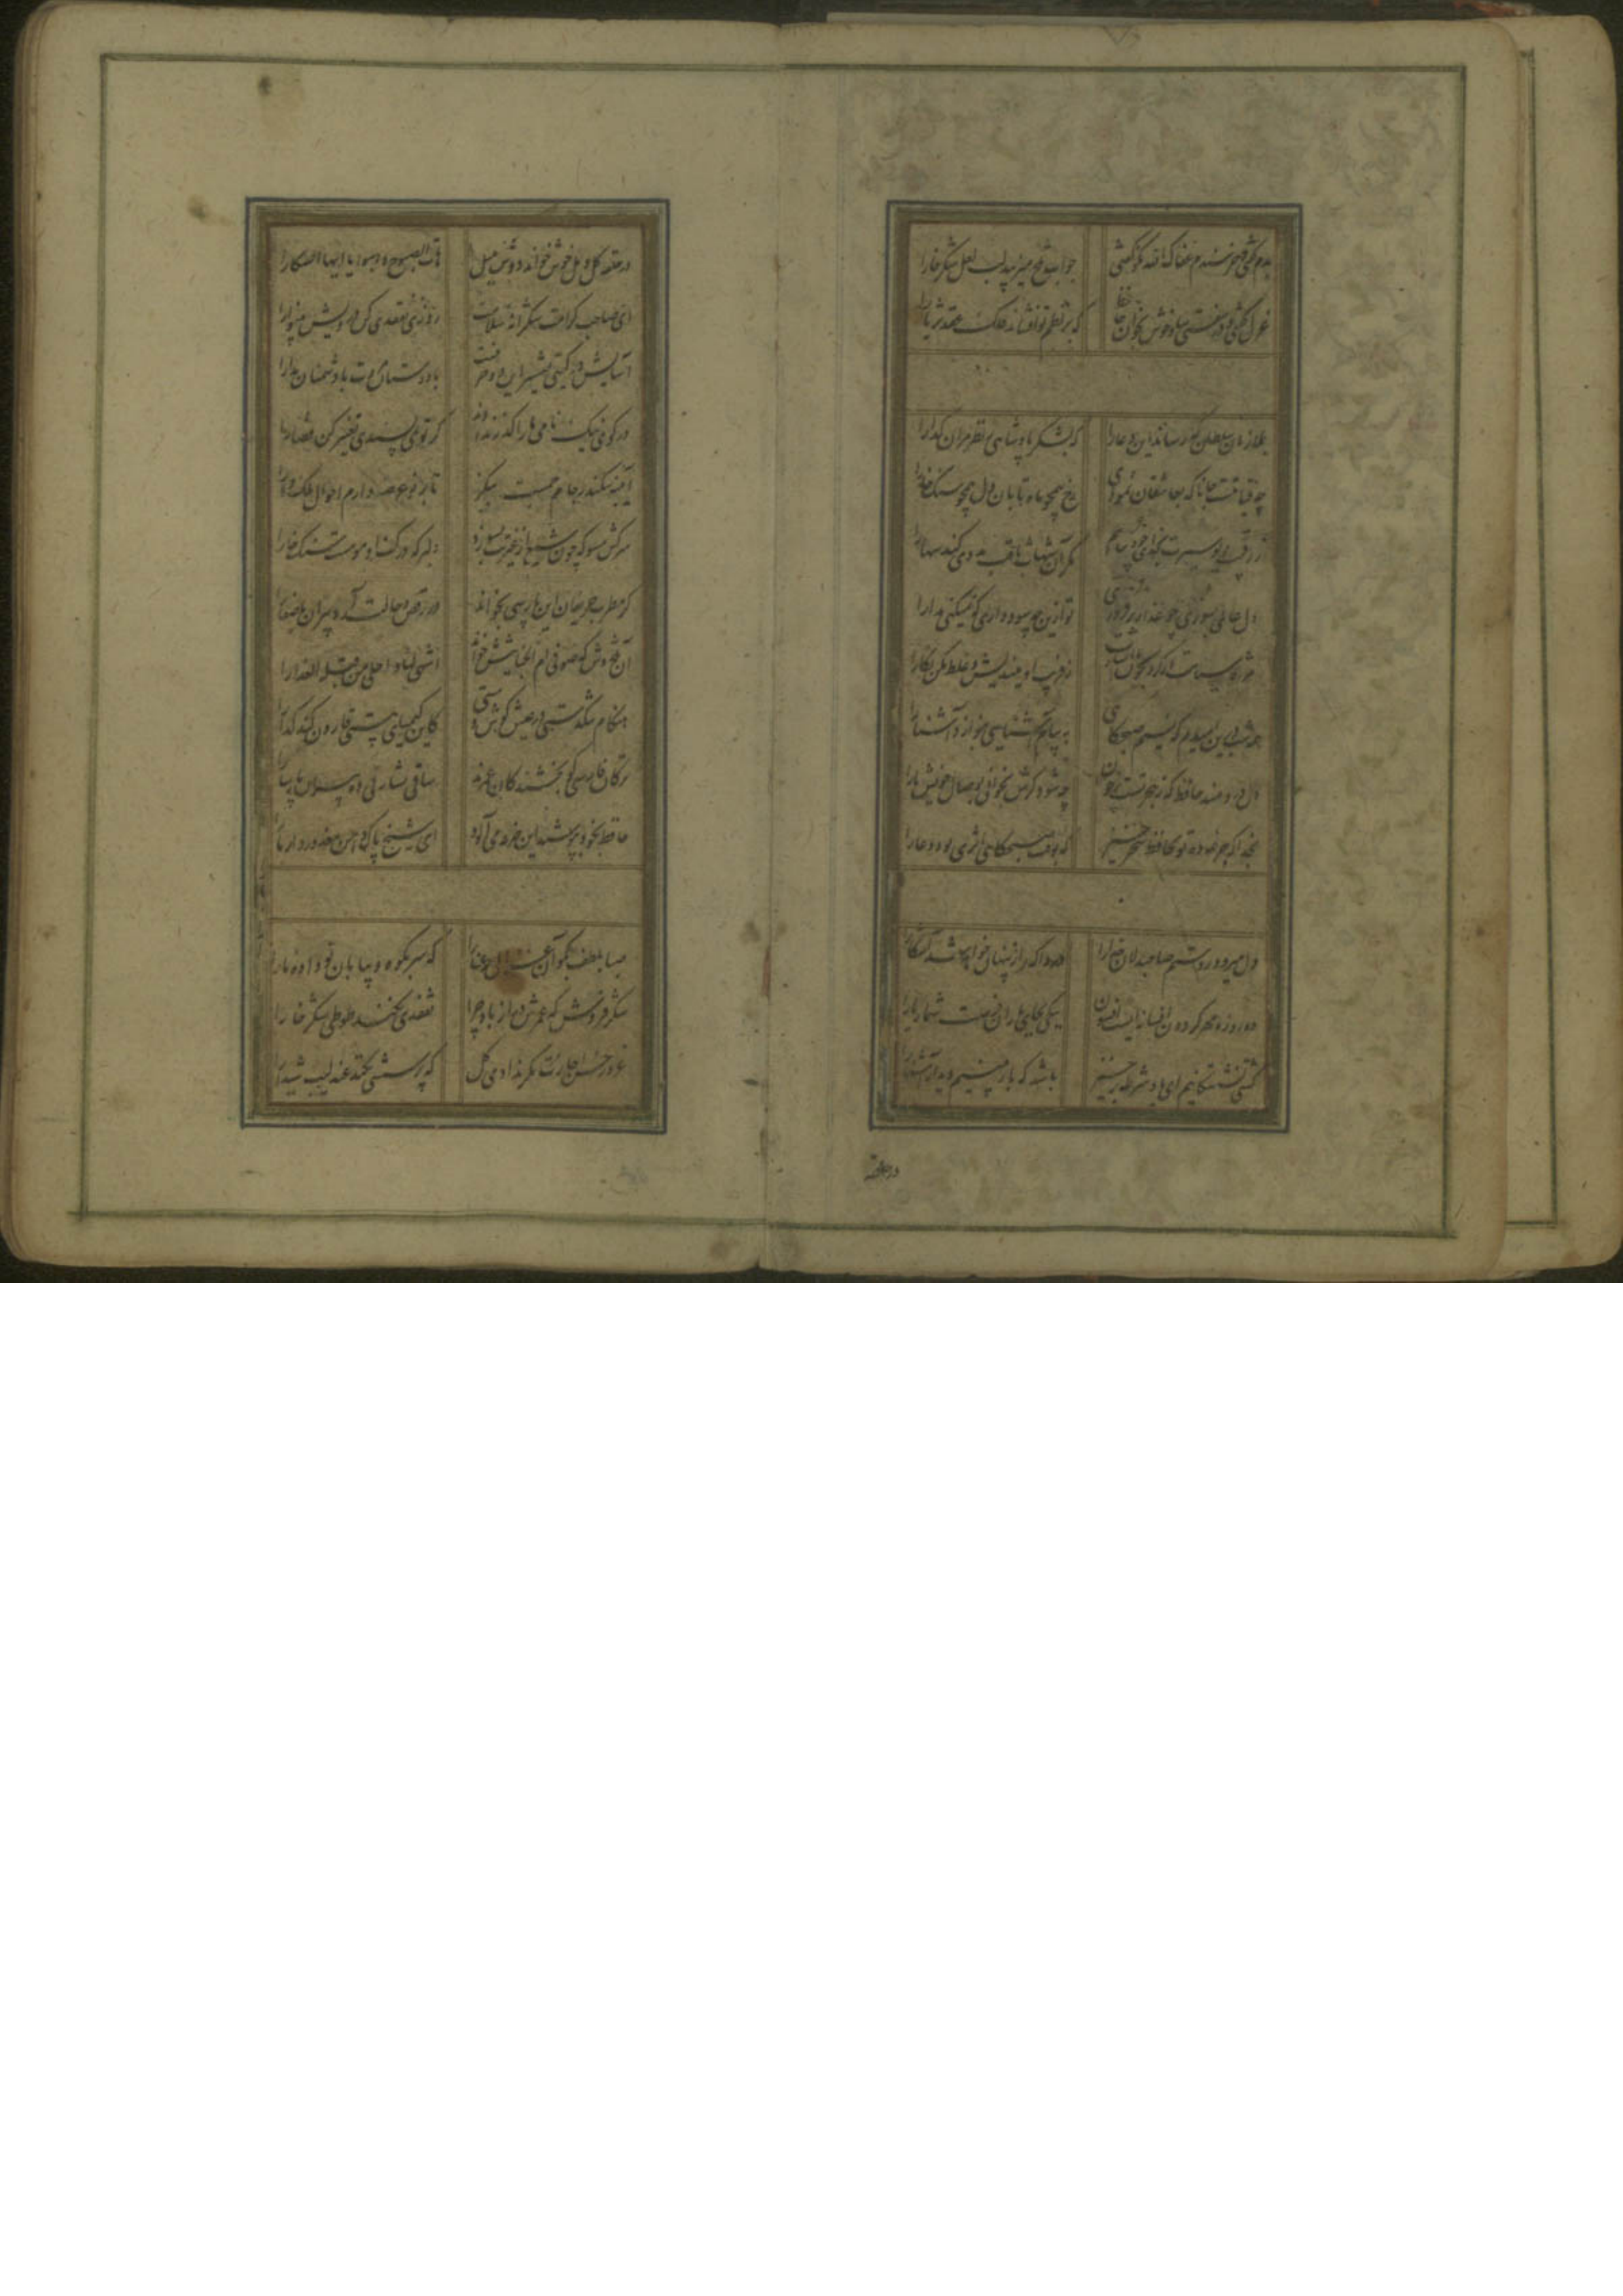 بدم گفتی و خرسندم عفاک الله نکو گفتی جواب تلخ میزیبد لب لعل شکرخارا
غزل گفتی و در سفتی بیا و خوش بخوان حافظ که بر نظم تو افشاند فلک عقد ثریا را
بملازمان سلطان که رساند این دعا را که بشکر پادشاهی ز نظر مران گدا را
چه قیامتست جانا که بعاشقان نمودی رخ همچو ماه تابان دل همچو سنگ خارا
ز رقیب دیو سیرت بخدای خود پناهم مگر آن شهاب ثاقب مددی کند سها را
دل عالمی بسوزی چو عذار برفروزی تو ازین چه سود داری که نمیکنی مدارا
مژه سیاهت ار کرد بخون ما اشارت ز فریب او بیندیش و غلط مکن نگارا
همه شب درین امیدم که نسیم صبحگاهی به پیام آشنایی بنوازد آشنا را
دل دردمند حافظ که ز هجر تست پرخون چه شود گرش بخوانی بوصال خویش یارا
بخدا که جرعه ده تو بحافظ سحرخیز که بوقت صبحگاهی اثری بود دعا را
دل میرود ز دستم صاحبدلان خدا را دردا که راز پنهان خواهد شد آشکارا
ده روزه مهر گردون افسانه ایست افسون نیکی بجای یاران فرصت شمار یارا
کشتی نشستگانیم ای باد شرطه برخیز باشد که باز بینیم دیدار آشنا را
در حلقه
در حلقه گل و مل خوش خواند دوش بلبل هات الصبوح هبوا یا ایها السکارا
ای صاحب کرامت شکرانه سلامت روزی تفقدی کن درویش بینوا را
آسایش دو گیتی تفسیر این دو حرفست با دوستان مروت با دشمنان مدارا
در کوی نیک نامی ما را گذر ندادند گر تو نمی پسندی تغییر کن قضا را
آیینه سکندر جام جمست بنگر تا بر تو عرضه دارم احوال ملک دارا
سرکش مشو که چون شمع از غیرتت بسوزد دلبر که در کف او مومست سنگ خارا
گر مطرب حریفان این پارسی بخواند در رقص و حالت آرد پیران پارسا را
آن تلخ وش که صوفی ام الخبایثش خواند اشهی لنا و احلی من قبلة العذارا
هنگام تنگدستی در عیش کوش و مستی کاین کیمیای هستی قارون کند گدا را
ترکان فارسی گو بخشندگان عمرند ساقی بشارتی ده پیران پارسا را
حافظ بخود نپوشید این خرقه می آلود ای شیخ پاک دامن معذور دار ما را
صبا بلطف بگو آن غزال رعنا را که سر بکوه و بیابان تو داده ما را
شکر فروش که عمرش دراز باد چرا تفقدی نکند طوطی شکرخا را
غرور حسن اجازت مگر نداد ای گل که پرسشی نکنی عندلیب شیدا را